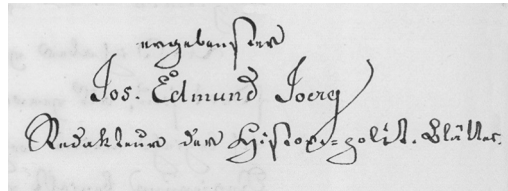 ergebenster
Jos. Edmund Joerg
Redakteur der Histor.=polit. Blätter.